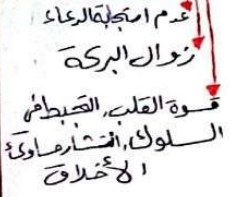 عدم استجابة الدعاء
زوال البركة
قسوة القلب، التخبط في
السلوك، انتشار مساوئ
الأخلاق